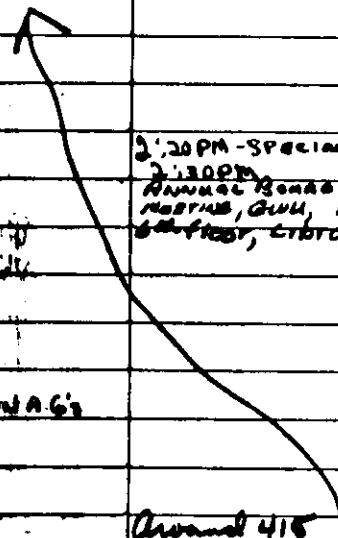 2:20 PM - SPECIAL
2:30 PM
ANNUAL BOARD
MEETING, GWU,
6th FLOOR,
A.G's
Around 415